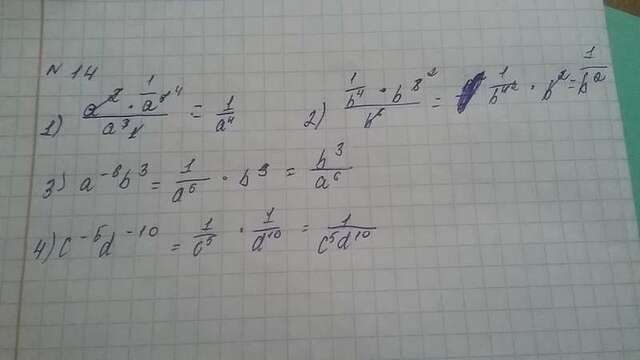 N 14
1) a² · 1/a⁸ ⁴ / a³ ¹ = 1/a⁴
2) 1/b⁴ · b⁸ ² / b⁶ = 1/b⁴ · b² = 1/b²
3) a⁻⁶b³ = 1/a⁶ · b³ = b³/a⁶
4) c⁻⁵d⁻¹⁰ = 1/c⁵ · 1/d¹⁰ = 1/c⁵d¹⁰